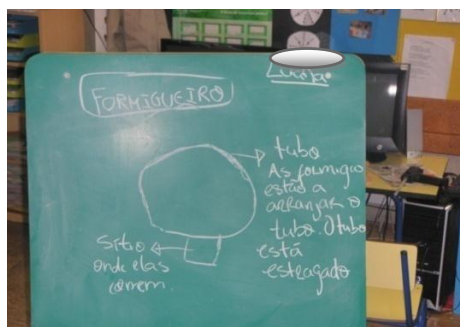 FORMIGUEIRO
tubo
As formigas
estão a
arranjar o
tubo. O tubo
está
estragado
Sítio
onde elas
comem.